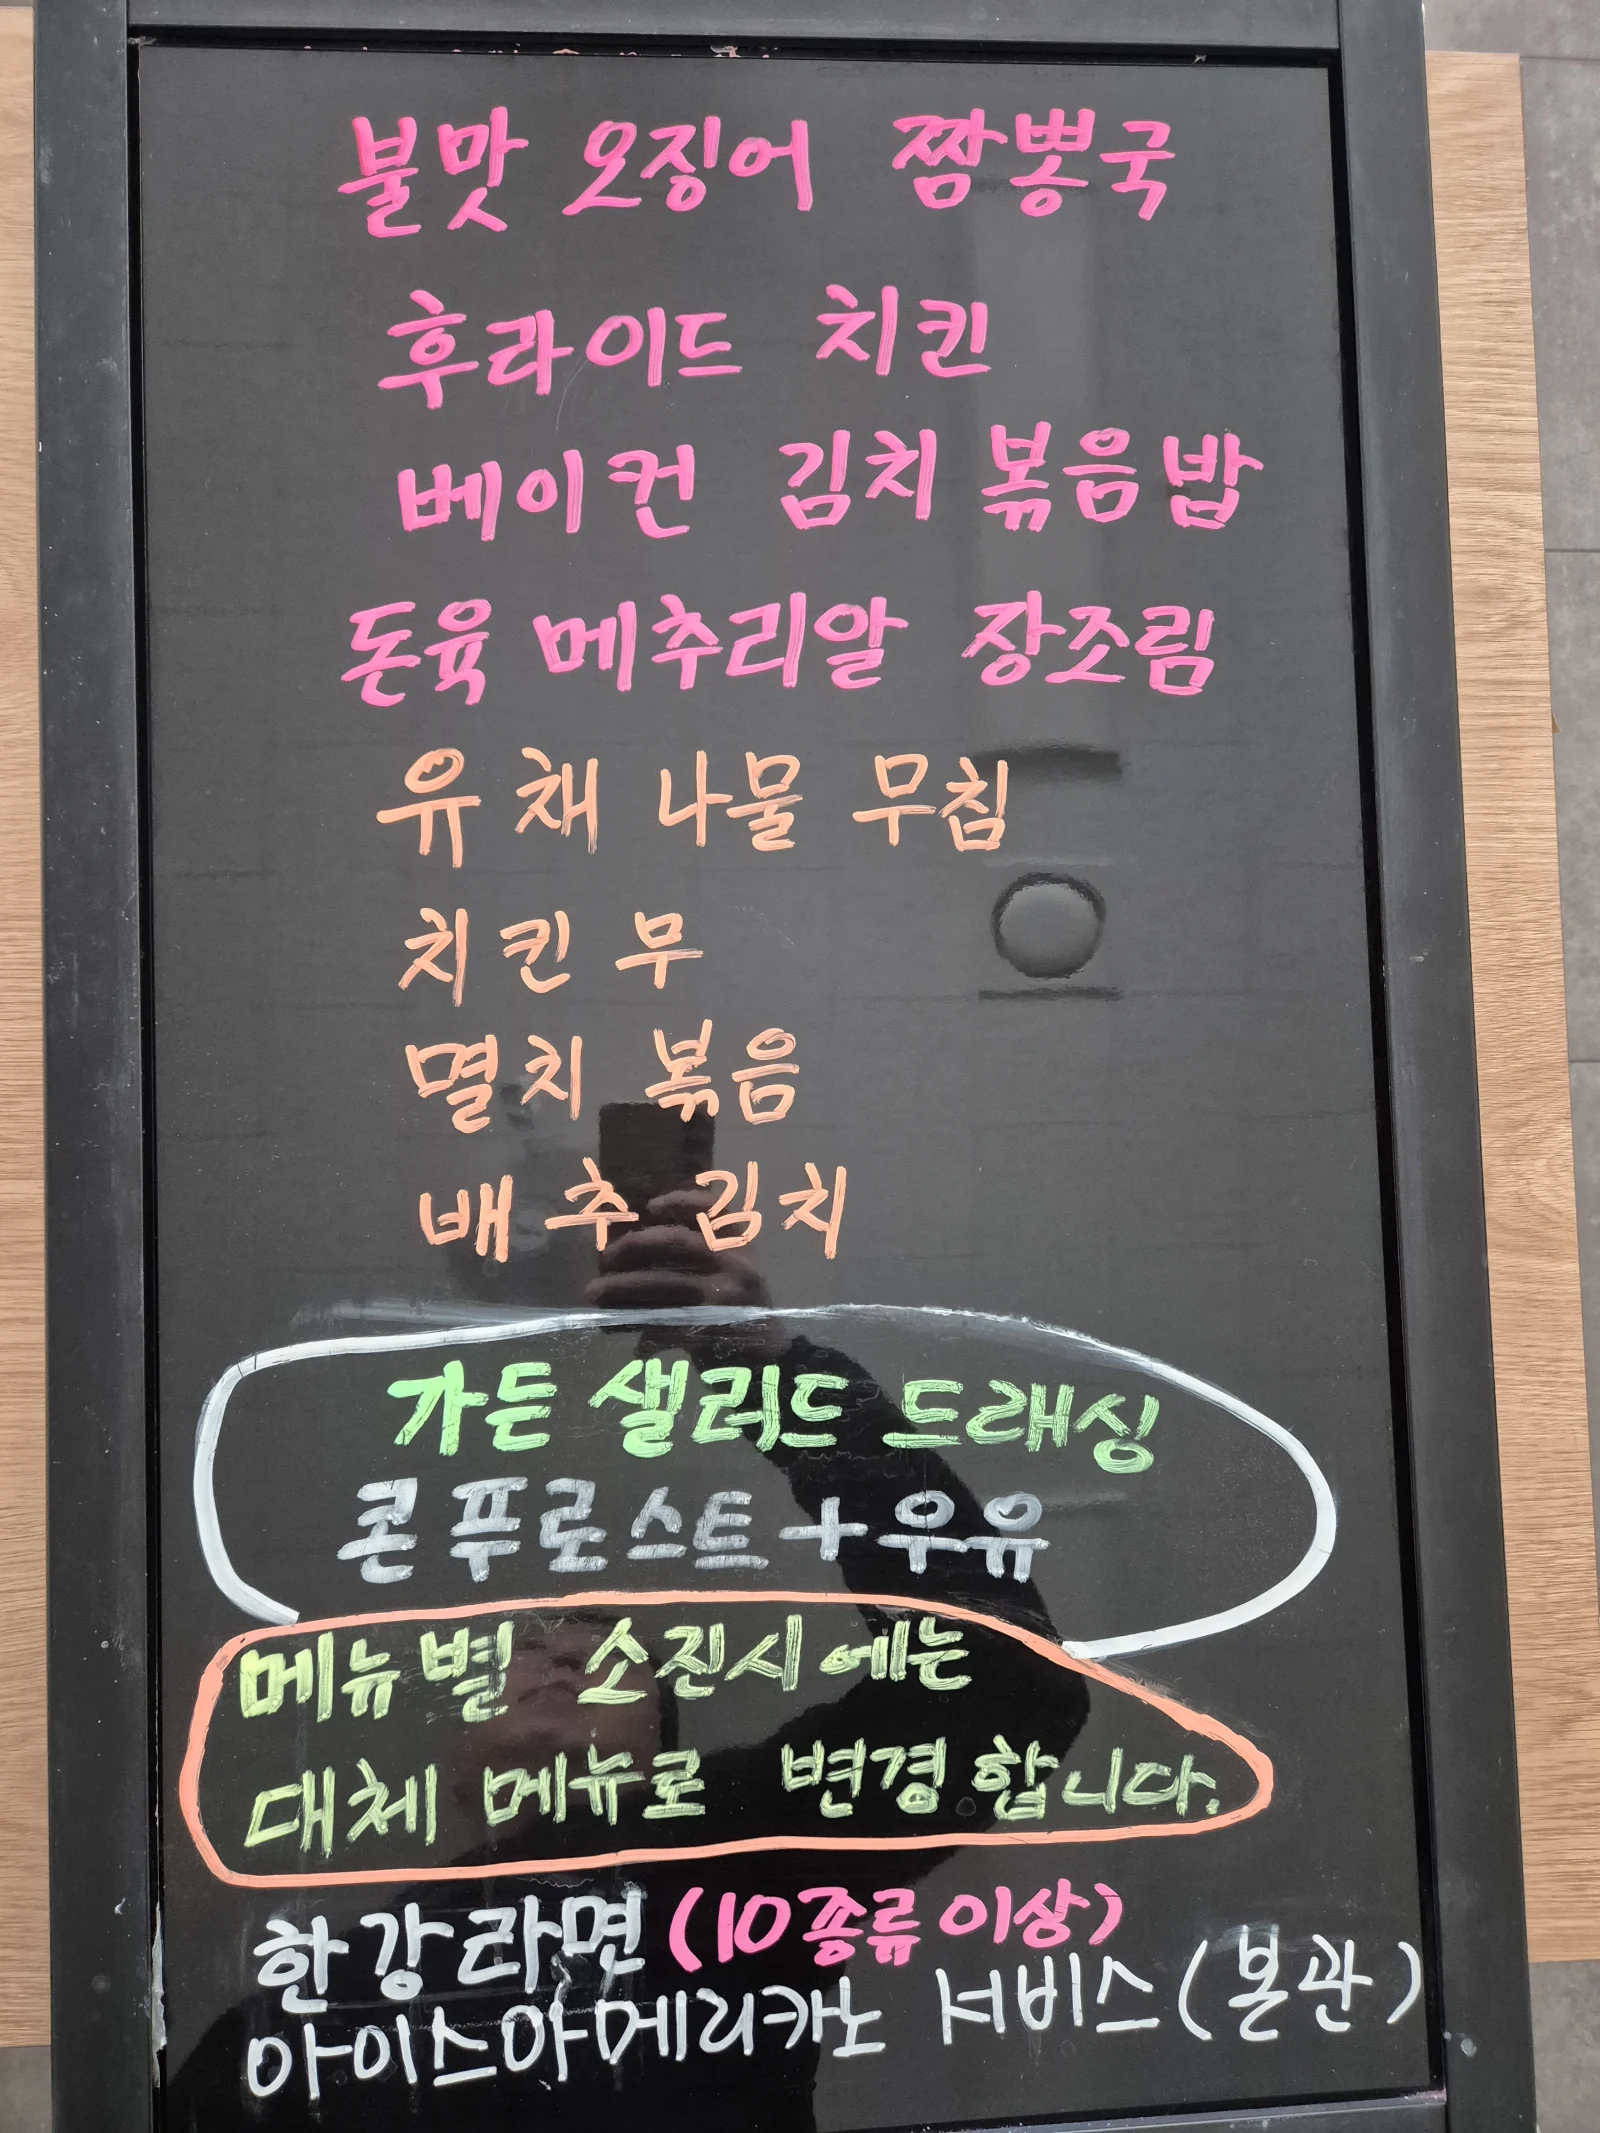 불맛 오징어 짬뽕국
후라이드 치킨
베이컨 김치 볶음밥
돈육 메추리알 장조림
유채 나물 무침
치킨 무
멸치 볶음
배추 김치
가든 샐러드 드래싱
콘푸로스트+우유
메뉴별 소진시에는
대체 메뉴로 변경합니다.
한강라면 (10종류이상)
아이스아메리카노 서비스(본관)